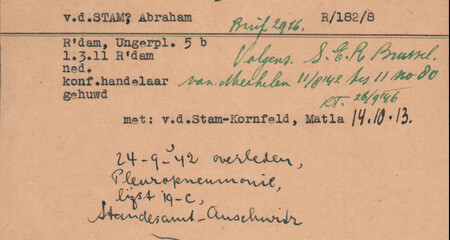 v.d.STAM, Abraham R/182/8
Brief 2966.
R'dam, Ungerpl. 5 b
Volgens S.E.R Brussel.
1.3.11 R'dam
ned.
konf.handelaar
van Mechelen 11/8'42 bis 11 no 80
gehuwd
RT. 26/9'46
met: v.d.Stam-Kornfeld, Matla 14.10.13.
24-9-'42 overleden,
Pleuropneumonie,
lijst 19-C,
Standesamt-Auschwitz